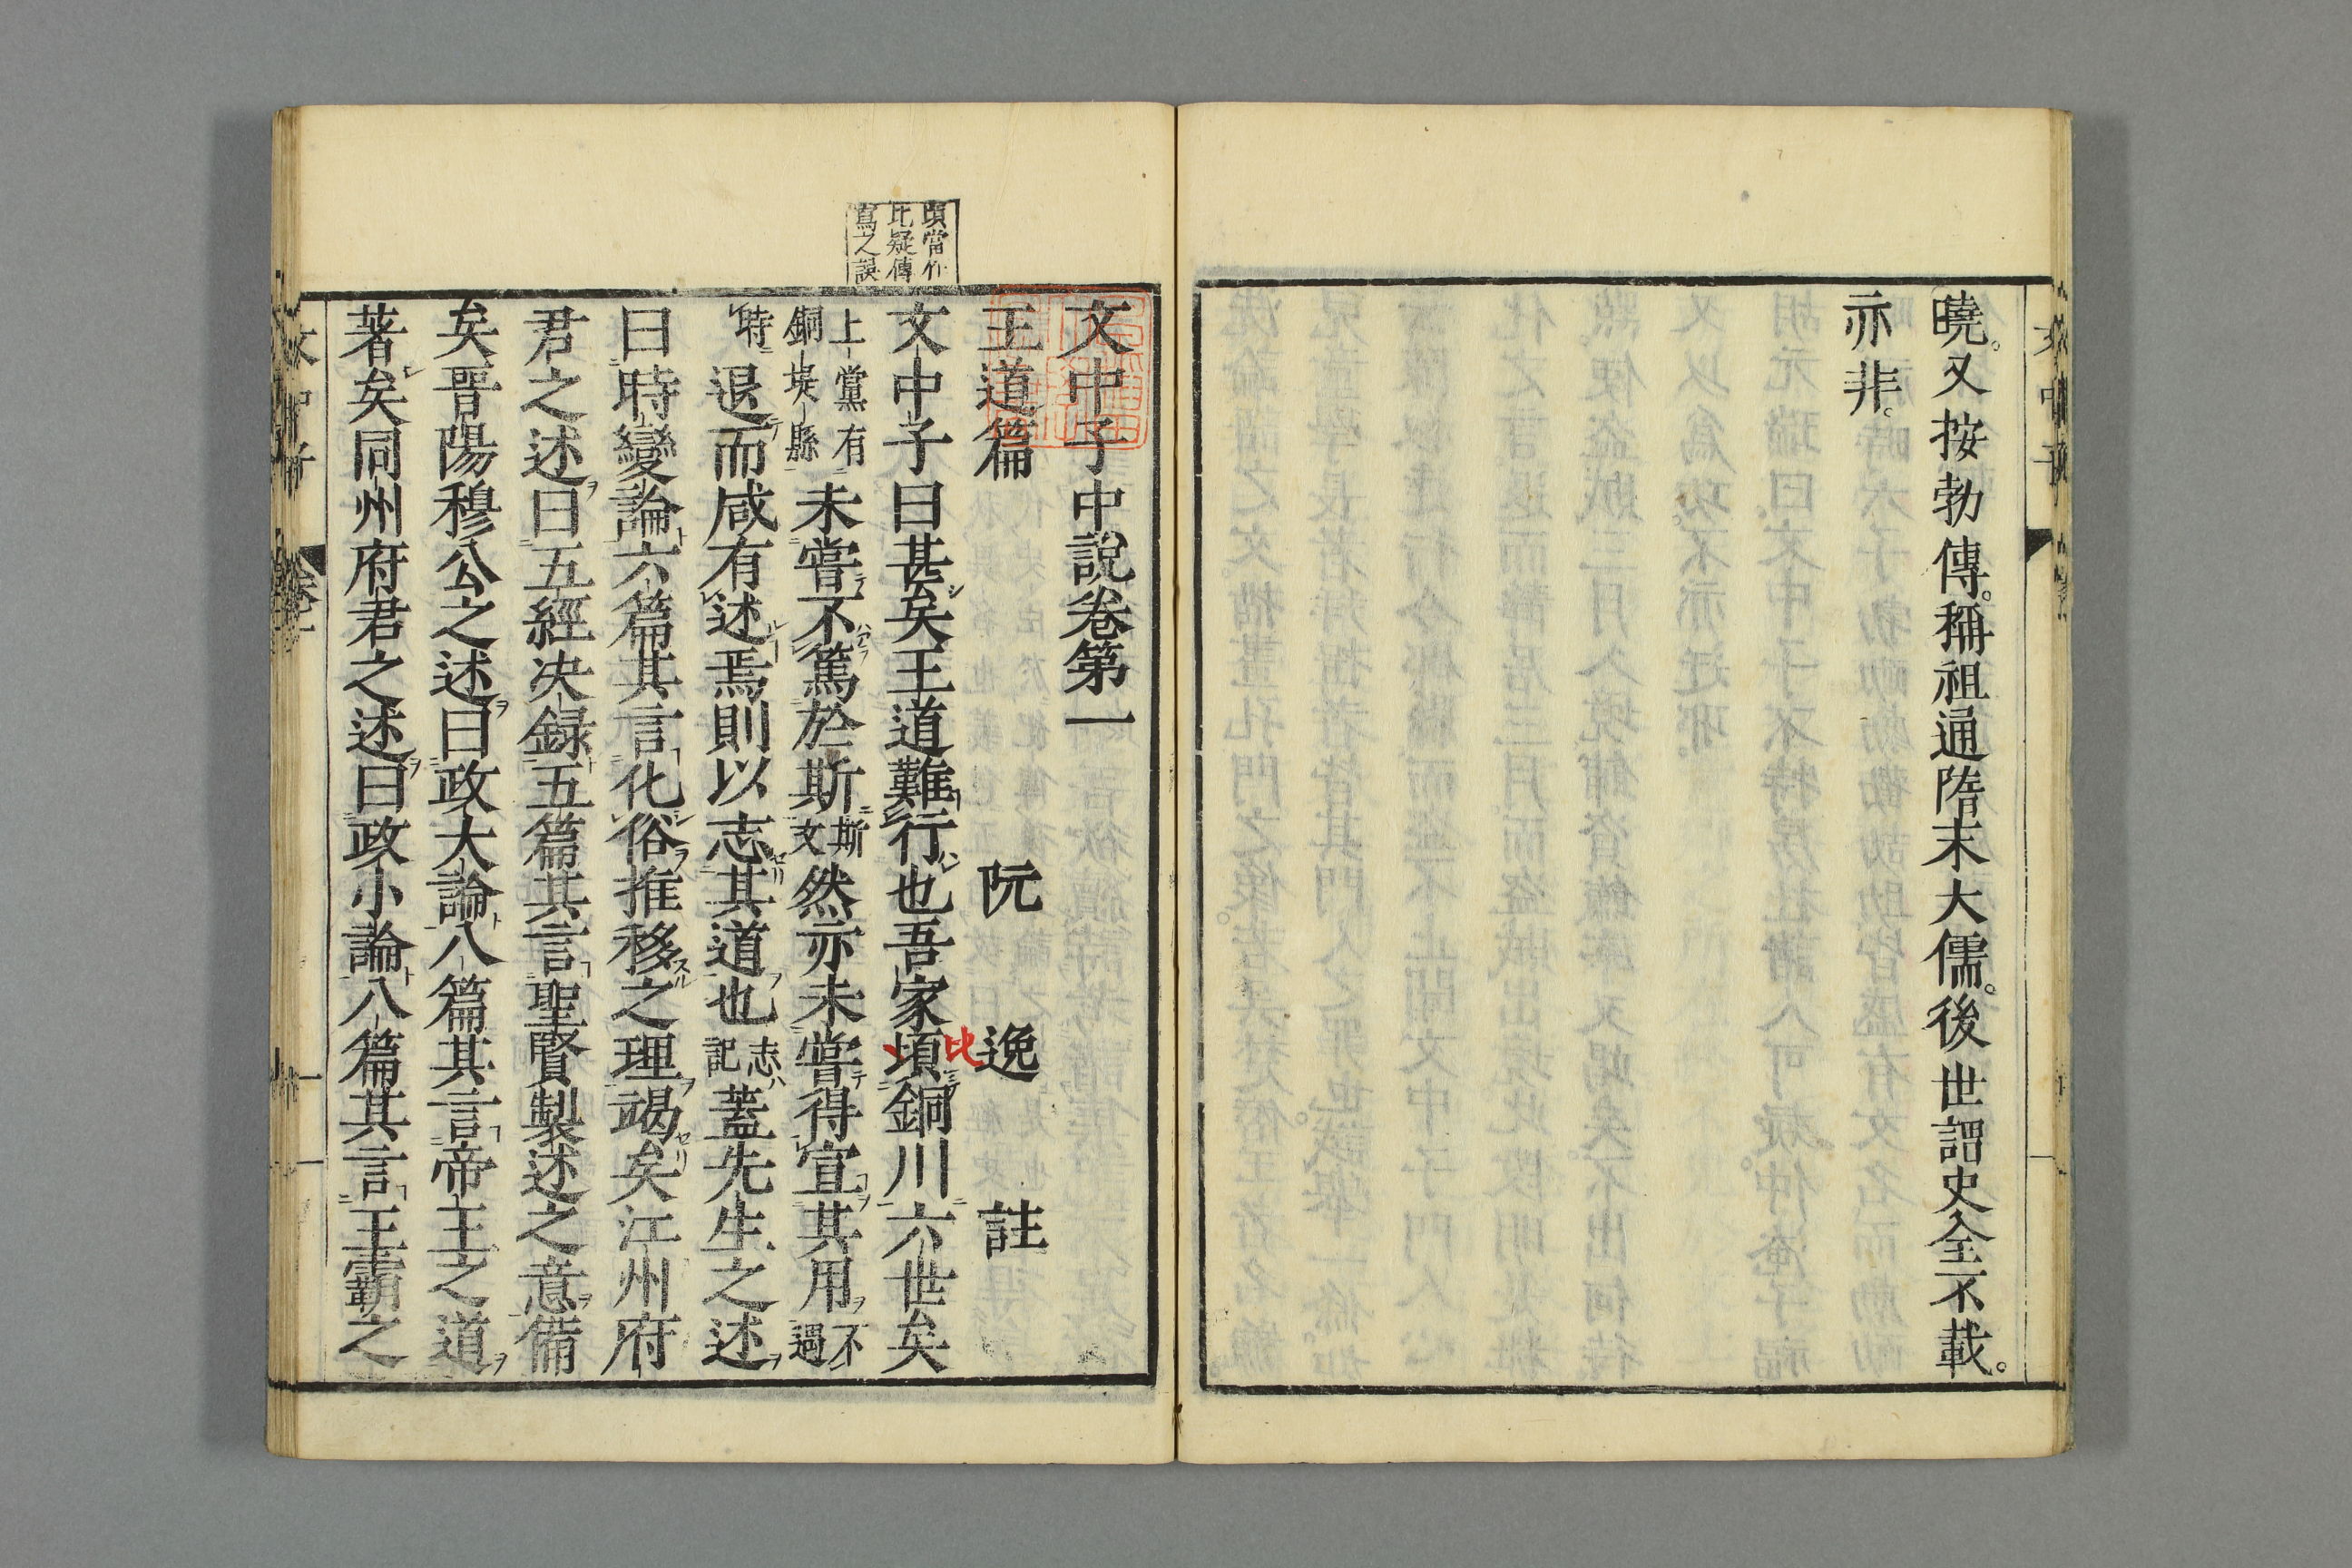 曉。又按勃傳。稱祖通隋末大儒。後世謂史全不載。
亦非。
頃當作
比疑傳
寫之誤
文中子中說卷第一
王道篇 阮 逸 註
文中子曰甚矣王道難行也吾家頃銅川六世矣
比
上黨有
銅堤縣
未嘗不篤於斯
斯
文
然亦未嘗得宣其用
不
遇
時
退而咸有述焉則以志其道也
志
記
蓋先生之述
曰時變論六篇其言化俗推移之理竭矣江州府
君之述曰五經決録五篇其言聖賢製述之意備
矣晉陽穆公之述曰政大論八篇其言帝王之道
著矣同州府君之述曰政小論八篇其言王霸之
文中子
卷一